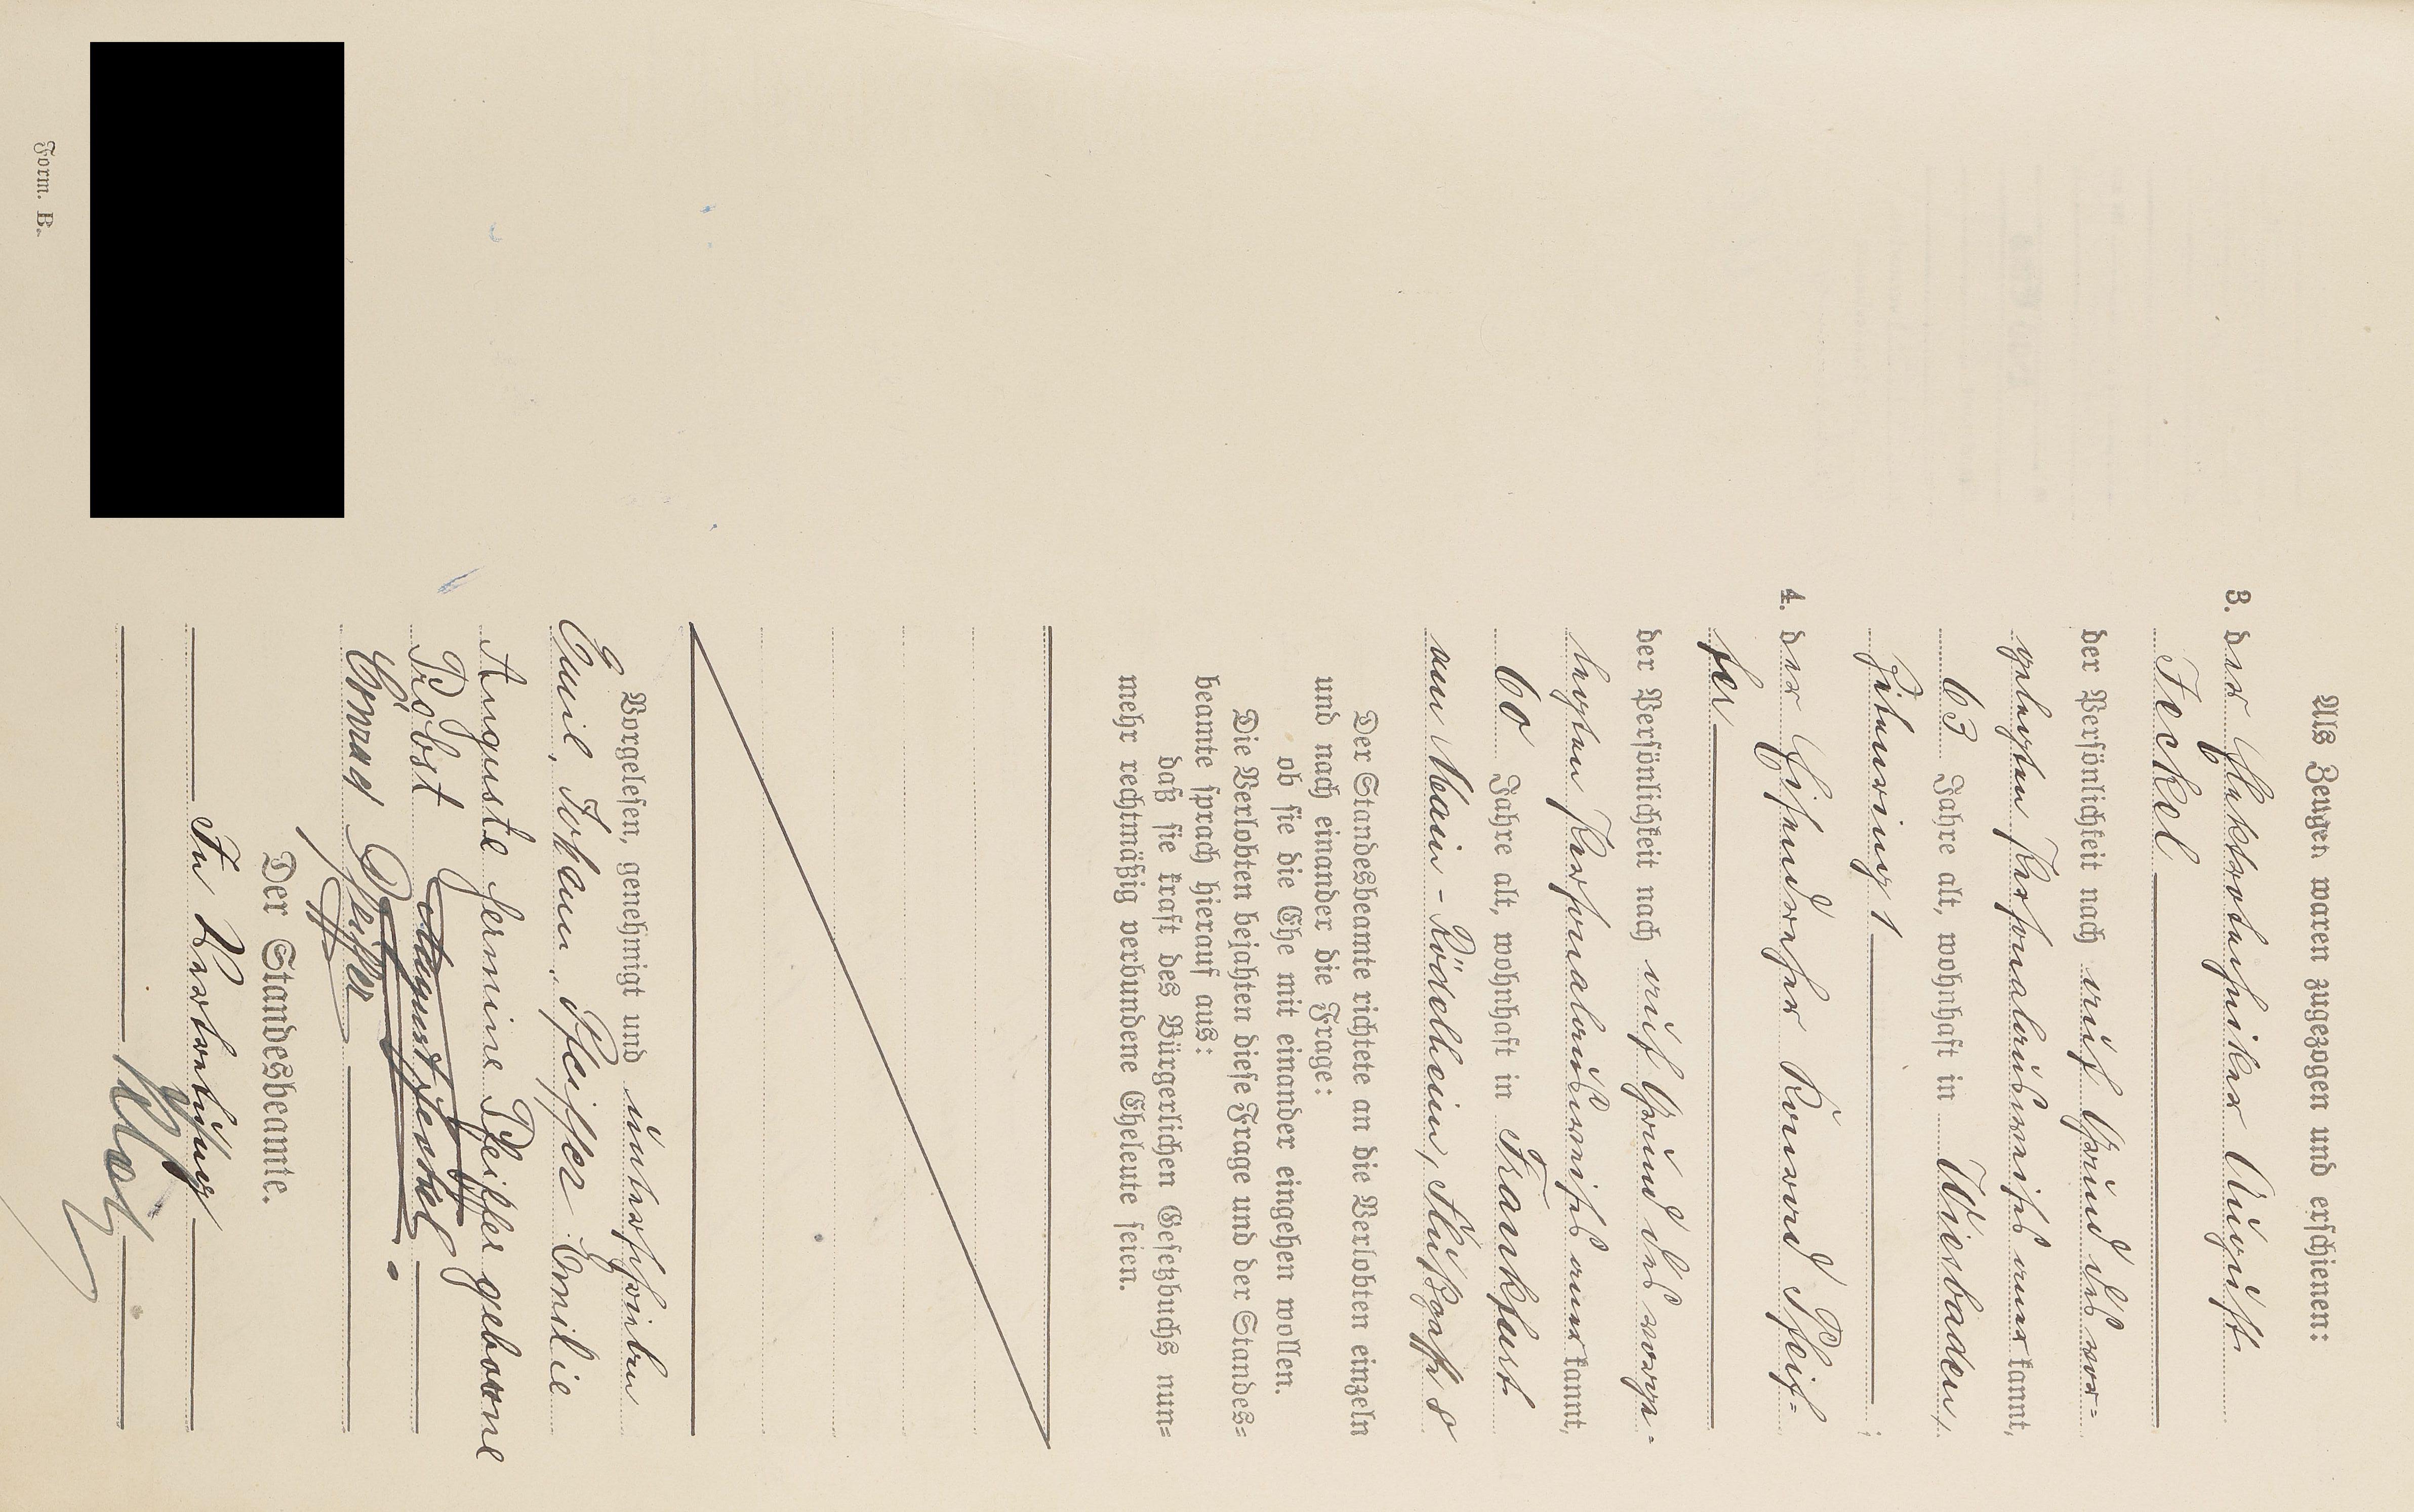 Als Zeugen waren zugezogen und erschienen:
3. der Elektrotechniker August
Jeckel
der Persönlichkeit nach auf Grund des vor=
gelegten Personalausweises aner kannt,
63 Jahre alt, wohnhaft in Wiesbaden,
Zietenring 1
4. der Eisendreher Konrad Pfeif=
fer
der Persönlichkeit nach auf Grund des vorge=
legten Personalausweises aner kannt,
60 Jahre alt, wohnhaft in Frankfurt
am Main - Rödelheim, 8
Der Standesbeamte richtete an die Verlobten einzeln
und nach einander die Frage:
ob sie die Ehe mit einander eingehen wollen.
Die Verlobten bejahten diese Frage und der Standes=
beamte sprach hierauf aus:
daß sie kraft des Bürgerlichen Gesetzbuchs nun=
mehr rechtmäßig verbundene Eheleute seien.
Vorgelesen, genehmigt und unterschrieben
Emil, Johann, Pfeiffer Emilie
Auguste Hermine Pfeiffer geborene
Probst August Jeckel
Konrad Pfeiffer
Der Standesbeamte.
In Vertretung
Form. B.